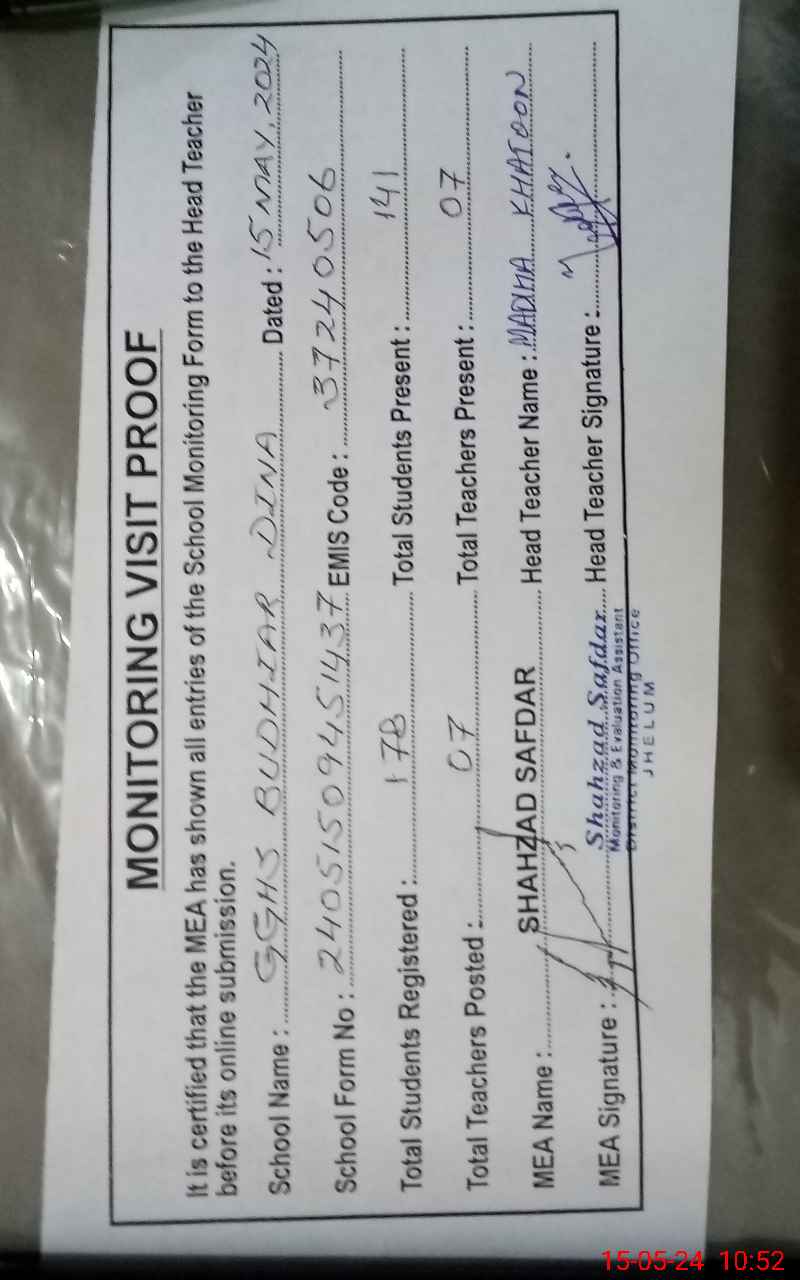 MONITORING VISIT PROOF
It is certified that the MEA has shown all entries of the School Monitoring Form to the Head Teacher
before its online submission.
School Name : GGHS BUDHIAR DINA Dated : 15 MAY, 2024
School Form No : 24051509451437 EMIS Code : 37240506
Total Students Registered : 178 Total Students Present : 141
Total Teachers Posted : 07 Total Teachers Present : 07
MEA Name : SHAHZAD SAFDAR Head Teacher Name : MADIHA KHATOON
MEA Signature : Head Teacher Signature :
Shahzad Safdar
Monitoring & Evaluation Assistant
District Monitoring Office
JHELUM
15-05-24 10:52